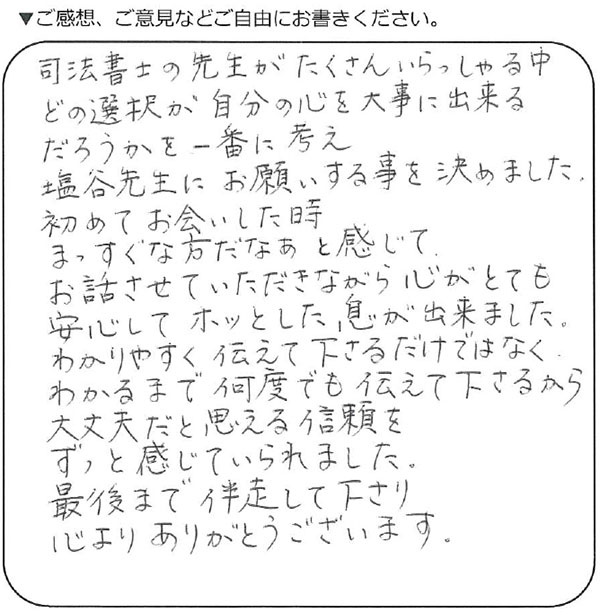 ▼ご感想、ご意見などご自由にお書きください。
司法書士の先生がたくさんいらっしゃる中
どの選択が自分の心を大事に出来る
だろうかを一番に考え
塩谷先生にお願いする事を決めました。
初めてお会いした時
まっすぐな方だなぁと感じて、
お話させていただきながら心がとても
安心してホッとした息が出来ました。
わかりやすく伝えて下さるだけではなく、
わかるまで何度でも伝えて下さるから
大丈夫だと思える信頼を
ずっと感じていられました。
最後まで伴走して下さり
心よりありがとうございます。